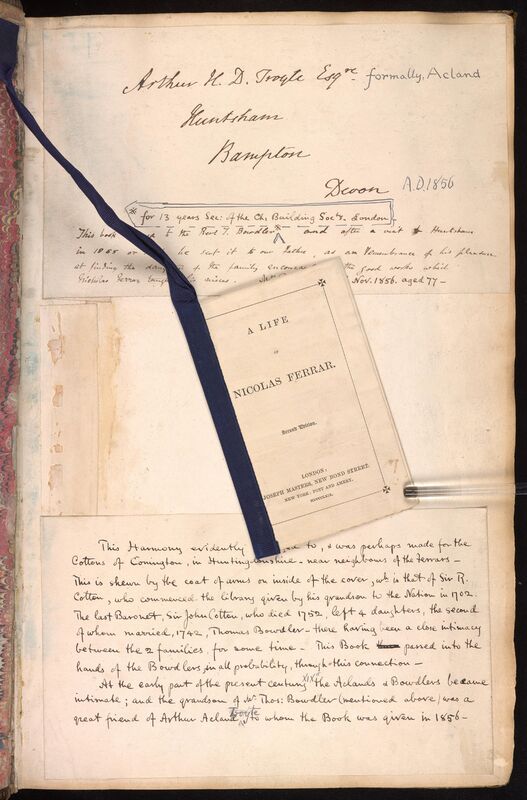 Arthur H. D. Troyte Esqre. formally, Acland
Huntsham
Bampton
Devon A.D. 1856
* for 13 years Sec: of the Ch. Building Socy. London.
This book to the Revd. T. Bowdler * and after a visit to Huntsham
in 1855 or he sent it to our Father, as an remembrance of his pleasure
at finding the of the family the good works which
Nicholas Ferrar nieces. Nov. 1856. aged 77 —
A LIFE
OF
NICOLAS FERRAR.
Second Edition.
LONDON:
JOSEPH MASTERS, NEW BOND STREET.
NEW YORK: POTT AND AMERY.
This Harmony evidently to, & was perhaps made for the
Cottons of Conington, in Huntingdonshire — near neighbours of the Ferrars —
This is shewn by the coat of arms on inside of the cover, wh. is that of Sir R.
Cotton, who commenced the library given by his grandson to the Nation in 1702.
The last Baronet, Sir John Cotton, who died 1752, left 4 daughters, the second
of whom married, 1742, Thomas Bowdler — there having been a close intimacy
between the 2 families, for some time — This Book passed into the
hands of the Bowdlers, in all probability, through this connection —
At the early part of the present century XIX the Aclands & Bowdlers became
intimate; and the grandson of Mr. Thos: Bowdler (mentioned above) was a
great friend of Arthur Acland Troyte to whom the Book was given in 1856 —